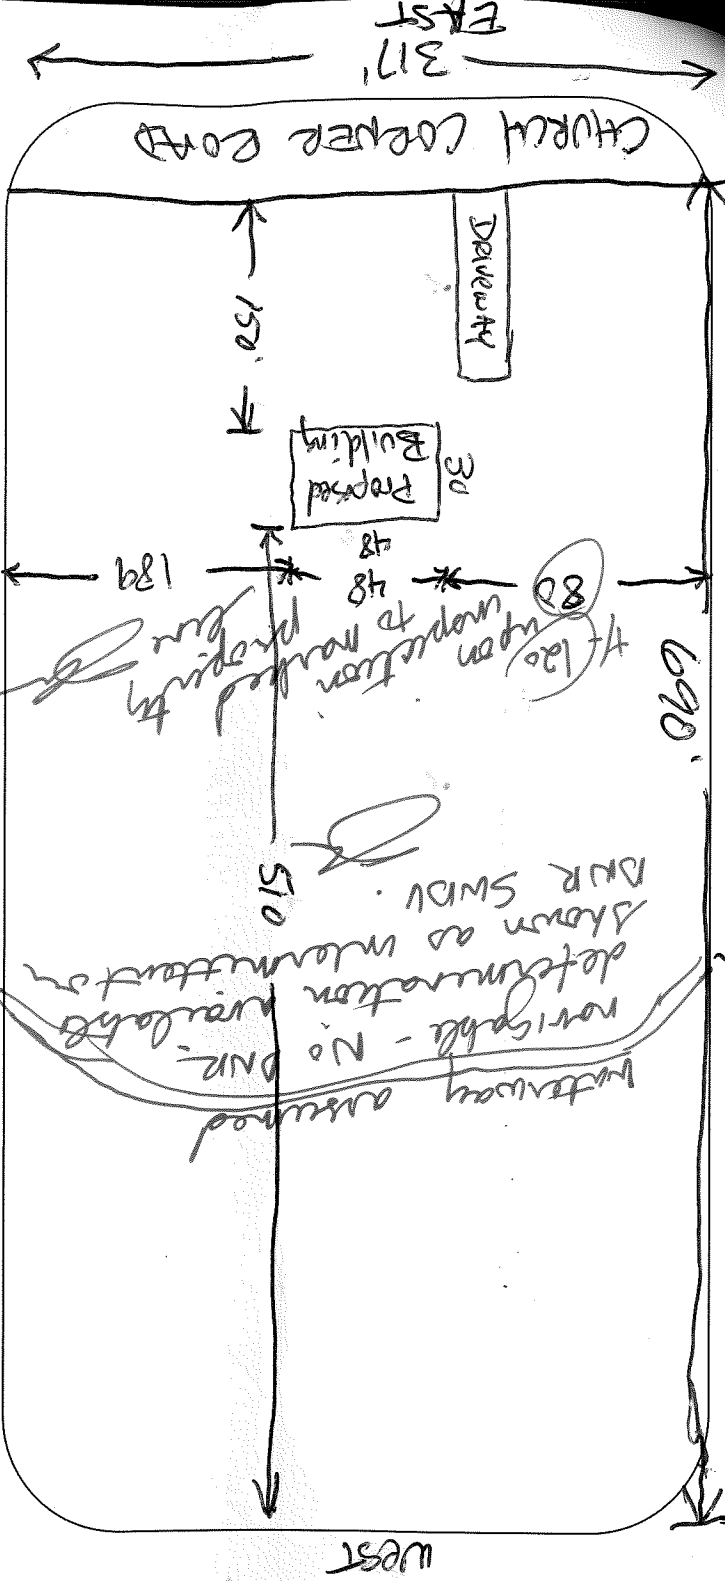 West
waterway assumed
navigable - No DNR
determination available
shown as intermittent on
DNR SWDV.
510
690'
+/- 120 upon
inspection to marked
property line
80
48
189
48
Proposed
Building
30
150'
DRIVEWAY
CHURCH CORNER ROAD
317'
EAST